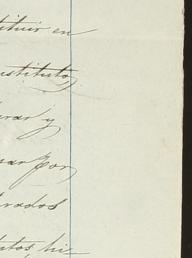 tituir en
nstituto,
rar y
sar por
trados
utos, hi-